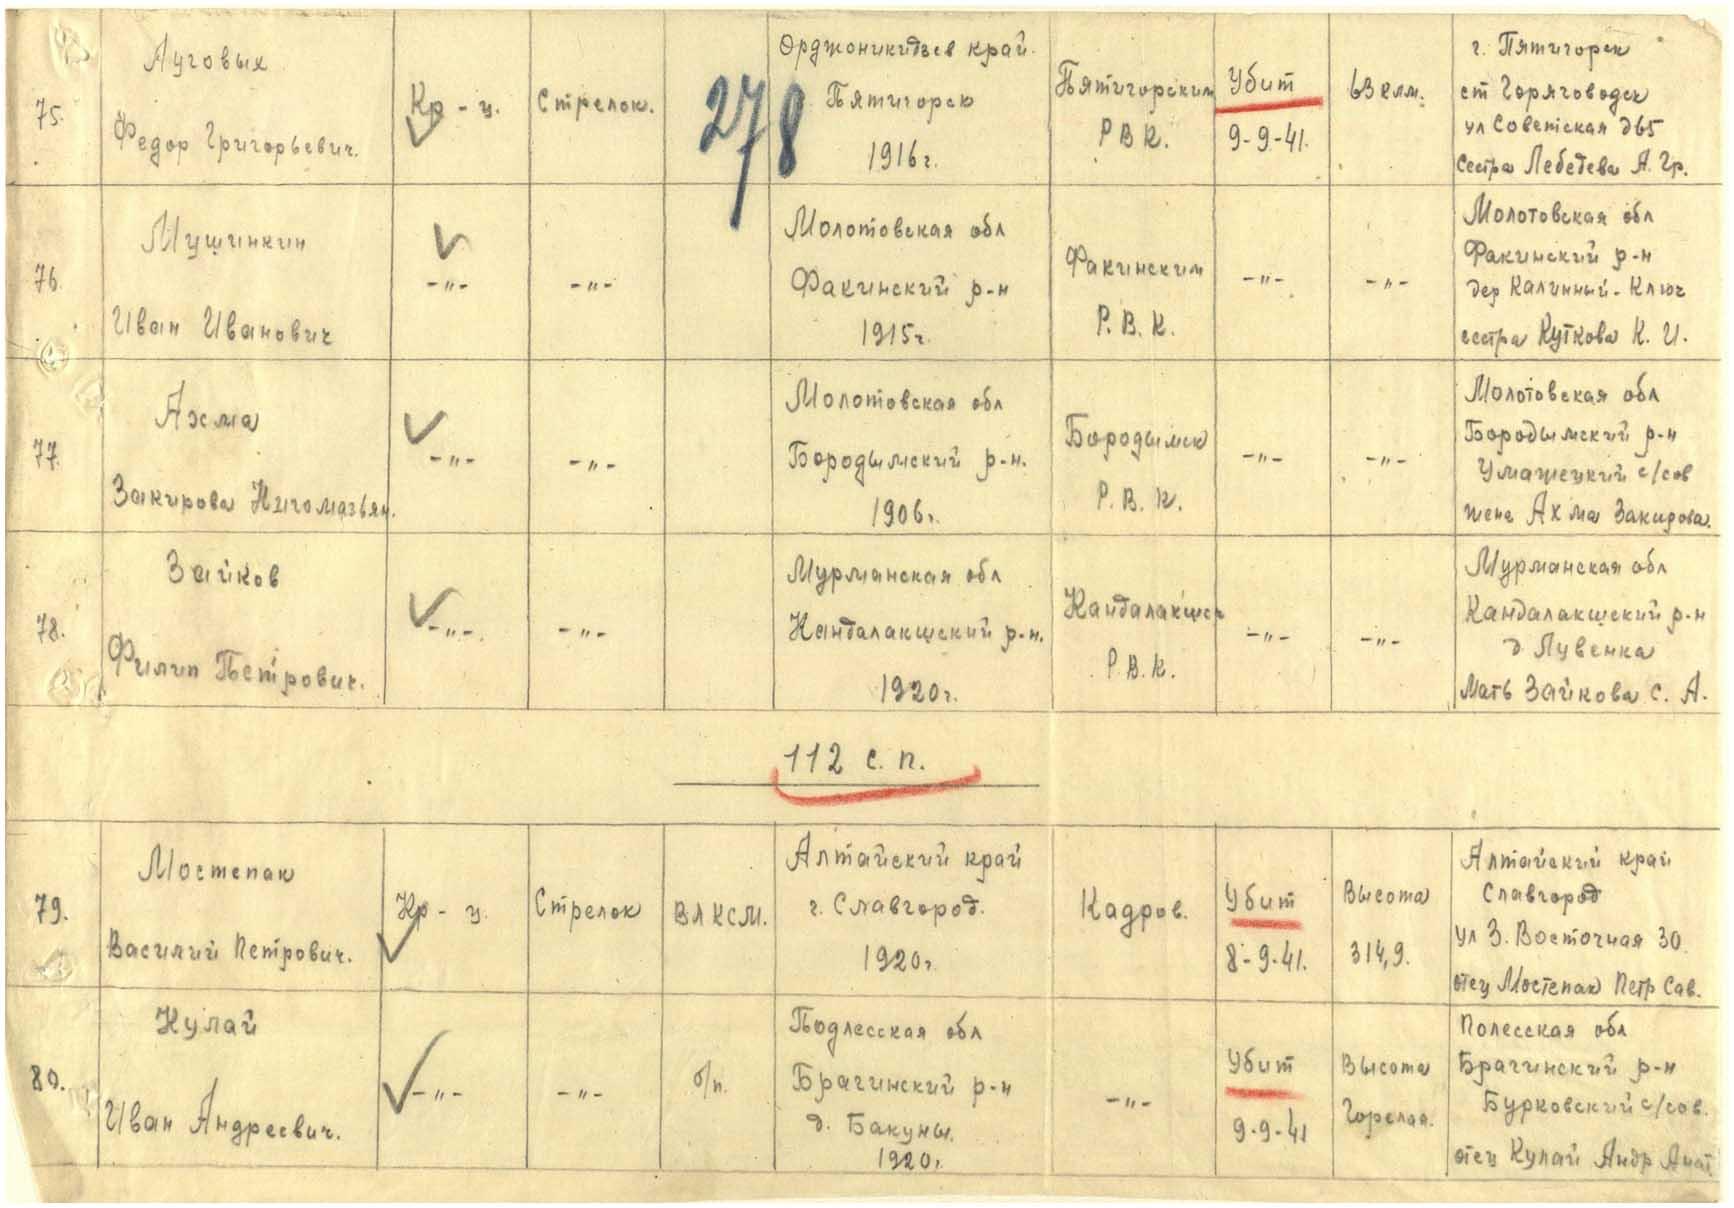 75.
Луговых
Федор Григорьевич.
Кр-ц.
Стрелок.
278
Орджоникидзев край.
Пятигорск
1916г.
Пятигорским
Р В К.
Убит
9-9-41.
63 клм.
г. Пятигорск
ст Горяговодск
ул Советская д65
сестра Лебедева А. Гр.
76.
Мушинкин
Иван Иванович
-"-
-"-
Молотовская обл
Факинский р-н
1915г.
Факинским
Р. В. К.
-"-
-"-
Молотовская обл
Факинский р-н
дер Калинный-Ключ
сестра Куткова К. И.
77.
Ахма
Закирова Нигомазьян.
-"-
-"-
Молотовская обл
Бородымский р-н.
1906г.
Бородымск
Р. В. К.
-"-
-"-
Молотовская обл
Бородымский р-н
Умашецкий с/сов
жена Ахма Закирова.
78.
Зайков
Филип Петрович.
-"-.
-"-
Мурманская обл
Кандалакшский р-н.
1920г.
Кандалакшск
Р. В. К.
-"-
-"-
Мурманская обл
Кандалакшский р-н
д Лувенка
Мать Зайкова С. А.
112 с. п.
79.
Мостепан
Василий Петрович.
Кр-ц.
Стрелок
ВЛКСМ.
Алтайский край
г. Славгород.
1920г.
Кадров.
Убит
8-9-41.
Высота
314,9.
Алтайский край
Славгород
ул З. Восточная 30.
отец Мостепан Петр Сав.
80.
Кулай
Иван Андреевич.
-"-
-"-
б/п.
Подлесская обл
Брагинский р-н
д. Бакуны.
1920г.
-"-
Убит
9-9-41
Высота
Горелая.
Полесская обл
Брагинский р-н
Бурковский с/сов.
отец Кулай Андр Анат.